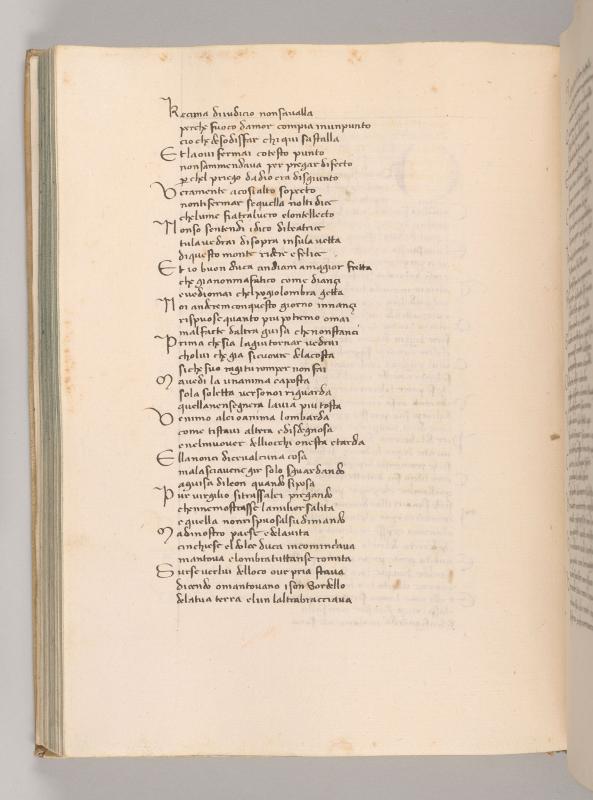 K ecima diiudicio nonsavalla
perche fuoco damor compia inunpunto
cio che desodisfar chi qui sastalla
E t laovi fermai cotesto punto
nonsammendava per pregar difecto
p chel priego dadio era disgiunto
V eramente acosi alto sopecto
nontifermar sequella noltidice
chelume fiatraluero elontellecto
N onso sentendi idico dibeatrice
tulavedrai disopra insula vetta
diquesto monte ridere efelice
E t io buon duca andiam amagior fretta
che gia nonmafatico come dianzi
evediomai chelpogiolombra getta
N oi anderem conquesto giorno innanzi
rispuose quanto piu potremo omai
malfacte daltra guisa che nonstanci
P rima che sia lagiu tornar vedrai
cholui che gia sicuopre delacosta
siche suo ragi turomper nonfai
M avedi la unanima caposta
sola soletta versonoi riguarda
quellanensegnera lavia piu tosta
V enimo alei oanima lombarda
come tistavi altera edisdegnosa
enelmuover delliocchi onesta etarda
E llanoni dicevalcuna cosa
malasciavene gir solo sguardando
aguisa dileon quando siposa
P ur virgilio sitrassalei pregando
chennemostrasse lamilior salita
equella nonrispuosalsudimando
M adinostro paese edelavita
cinchiese eldolce duca incomincava
mantova elombratuttanse romita
S urse verlui delloco ove pria stava
dicendo omantovano ison Sordello
delatua terra elun laltrabracciava